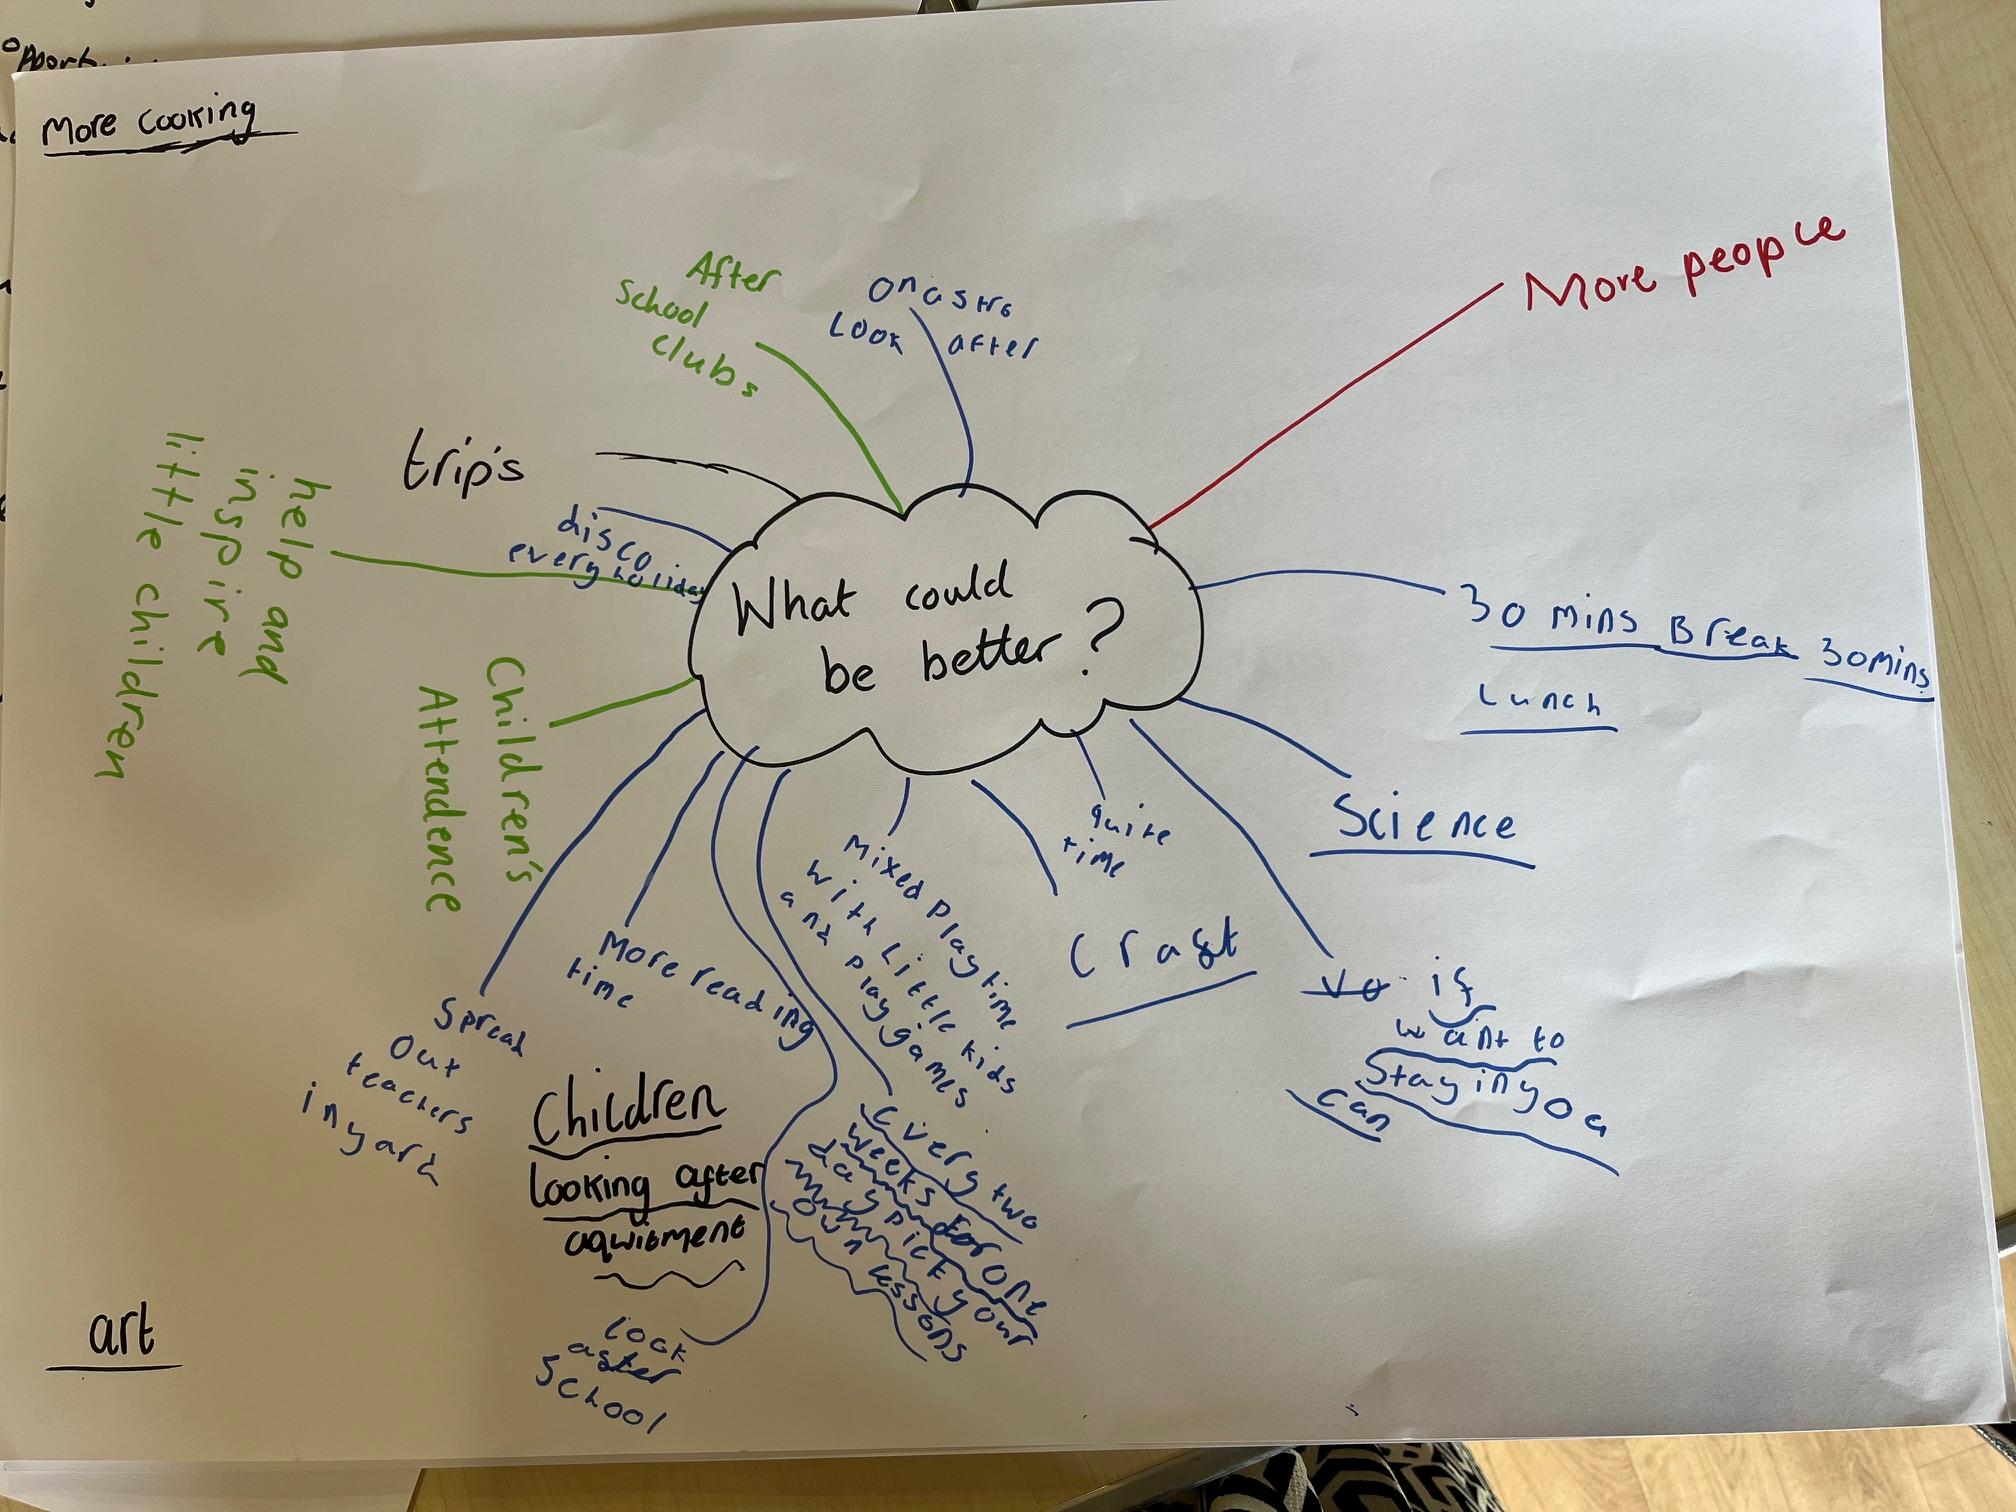 More cooking
After
School
clubs
On astro
Look after
More people
trip's
disco
every holiday
help and
inspire
little children
What could
be better?
30 mins Break 30mins
Lunch
Children's
Attendence
Science
quite
time
Craft
if
want to
Stay in yoa
can
Mixed play time
with little kids
and play games
More reading
time
Spread
out
teachers
in yard
Children
looking after
aqwitment
every two
weeks for one
day pick your
own lessons
look
after
School
art